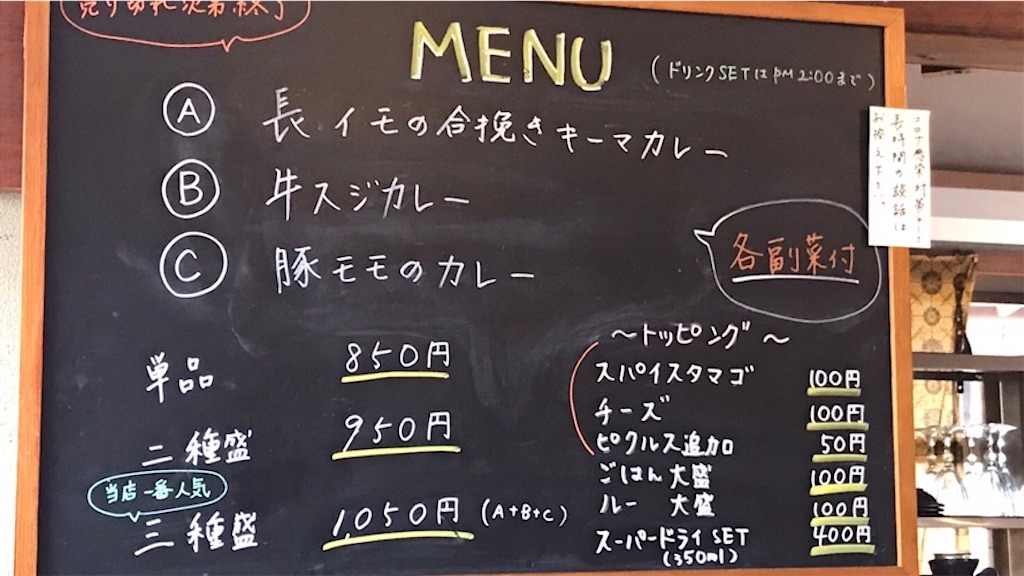 売り切れ次第終了
MENU
(ドリンクSETはPM2:00まで)
A 長イモの合挽きキーマカレー
B 牛スジカレー
C 豚モモのカレー
各副菜付
コロナ感染対策として
長時間の談話は
お控え下さい。
単品 850円
二種盛 950円
当店一番人気
三種盛 1,050円 (A+B+C)
～トッピング～
スパイスタマゴ 100円
チーズ 100円
ピクルス追加 50円
ごはん大盛 100円
ルー 大盛 100円
スーパードライSET 400円
(350ml)